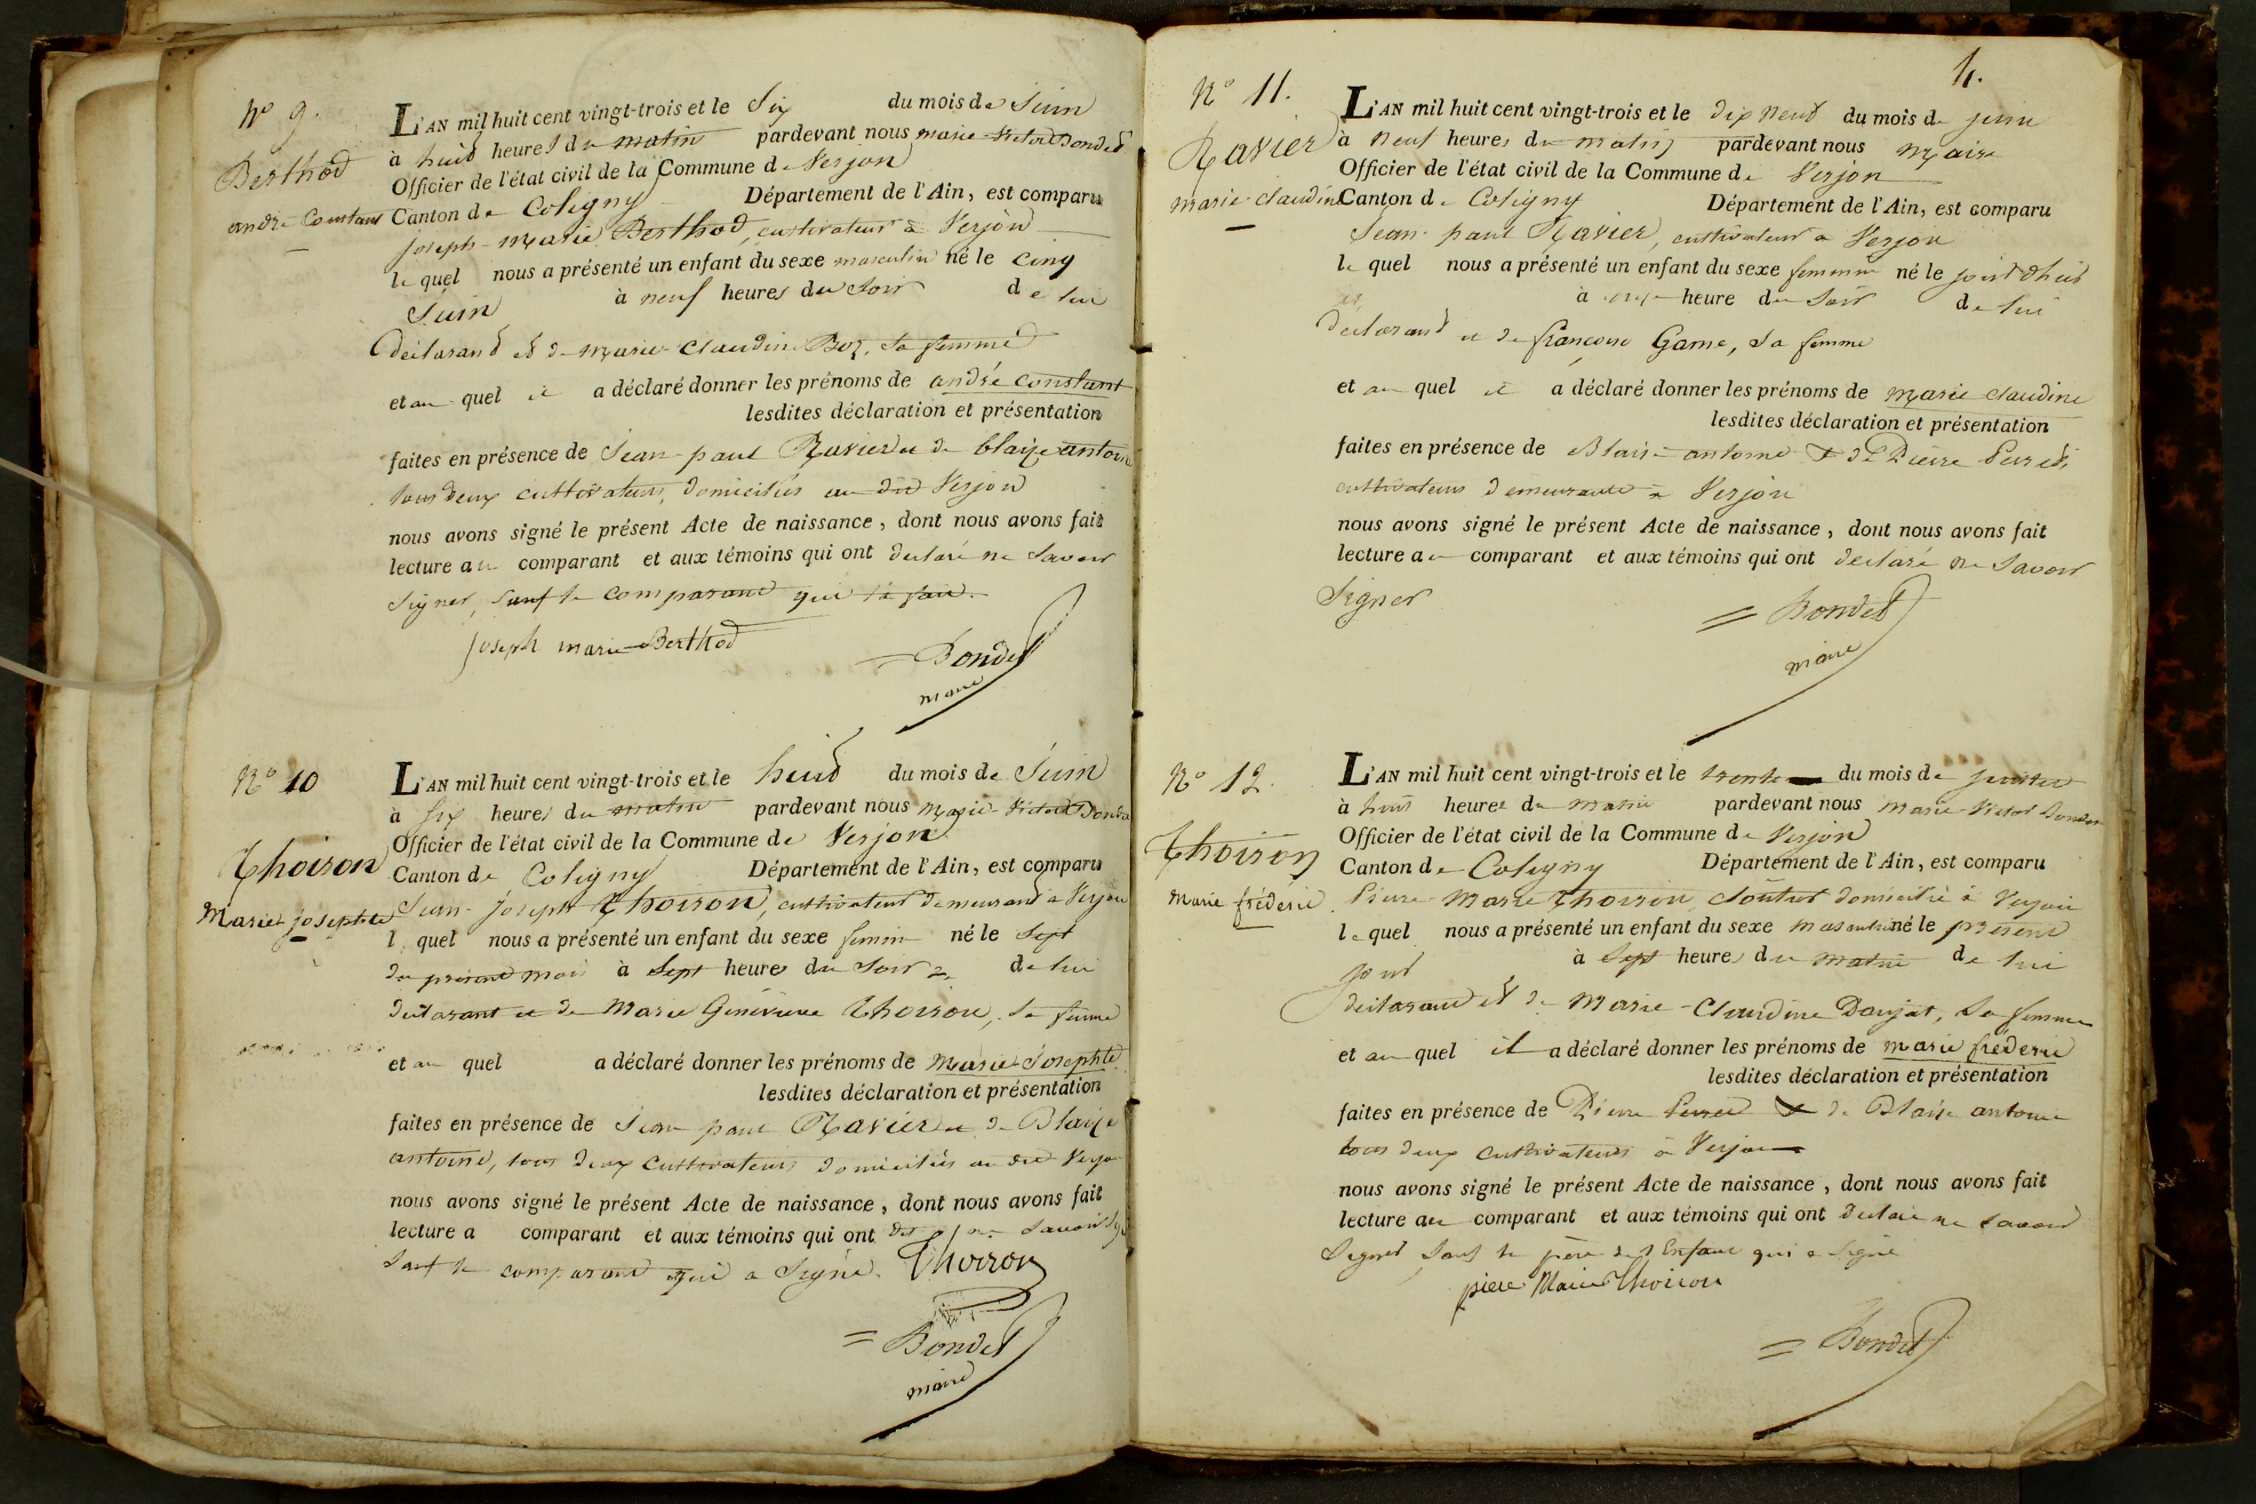 No 9.
Berthod
andré Constant
L'AN mil huit cent vingt-trois et le Six du mois de Juin
à huit heures du matin pardevant nous marie-victor Bondet
Officier de l'état civil de la Commune de Verjon
Canton de Coligny Département de l'Ain, est comparu
joseph-marie Berthod, cultivateur à Verjon
le quel nous a présenté un enfant du sexe masculin né le cinq
Juin à neuf heures du Soir de lui
déclarant et de marie-Claudine Boz, sa femme
et au quel il a déclaré donner les prénoms de andré constant
lesdites déclaration et présentation
faites en présence de Jean-paul Ravier et de blaize antoine
tous deux cultivateurs, domiciliés au dit Verjon
nous avons signé le présent Acte de naissance, dont nous avons fait
lecture au comparant et aux témoins qui ont déclaré ne Savoir
Signer, sauf le comparant qui l'a fait.
joseph marie Berthod
Bondet
maire
No 10
Thoiron
Marie josephte
L'AN mil huit cent vingt-trois et le huit du mois de Juin
à Six heures du matin pardevant nous Marie-Victor Bondet
Officier de l'état civil de la Commune de Verjon
Canton de Coligny Département de l'Ain, est comparu
Jean-joseph Thoiron, cultivateur demeurant à Verjon
l quel nous a présenté un enfant du sexe feminin né le Sept
du présent mois à Sept heures du Soir de lui
déclarant et de Marie Généviève Thoiron, sa femme
et au quel a déclaré donner les prénoms de Marie-Josephte
lesdites déclaration et présentation
faites en présence de Jean paul Ravier et de Blaize
antoine, tous deux Cultivateurs domiciliés au dit Verjon
nous avons signé le présent Acte de naissance, dont nous avons fait
lecture a comparant et aux témoins qui ont ne Savoir
Sauf le comparant qui a Signé. Thoiron
Bondet
maire
4.
No 11.
Ravier
marie claudine
L'AN mil huit cent vingt-trois et le dix neuf du mois de juin
à neuf heures du matin pardevant nous Maire
Officier de l'état civil de la Commune de Verjon
Canton de Coligny Département de l'Ain, est comparu
Jean-paul Ravier, cultivateur à Verjon
le quel nous a présenté un enfant du sexe feminin né le jour d'huit
à heure du Soir de lui
déclarant et de françoise Game, sa femme
et au quel il a déclaré donner les prénoms de marie claudine
lesdites déclaration et présentation
faites en présence de Blaise antoine & de Pierre
cultivateurs demeurants à Verjon
nous avons signé le présent Acte de naissance, dont nous avons fait
lecture au comparant et aux témoins qui ont déclaré ne Savoir
Signer
Bondet
maire
No 12.
Thoiron
Marie fréderic
L'AN mil huit cent vingt-trois et le trente du mois de
à huit heures du matin pardevant nous Marie-Victor Bondet
Officier de l'état civil de la Commune de Verjon
Canton de Coligny Département de l'Ain, est comparu
Pierre-Marie Thoiron, domicilié à Verjon
le quel nous a présenté un enfant du sexe masculin né le présent
jour à Sept heures du matin de lui
déclarant et de Marie-Claudine Donjat, sa femme
et au quel il a déclaré donner les prénoms de marie fréderic
lesdites déclaration et présentation
faites en présence de Pierre & de Blaise antoine
tous deux cultivateurs à Verjon
nous avons signé le présent Acte de naissance, dont nous avons fait
lecture au comparant et aux témoins qui ont déclaré ne savoir
Signer Sauf le père de l'Enfant qui a Signé
piere Marie Thoiron
Bondet